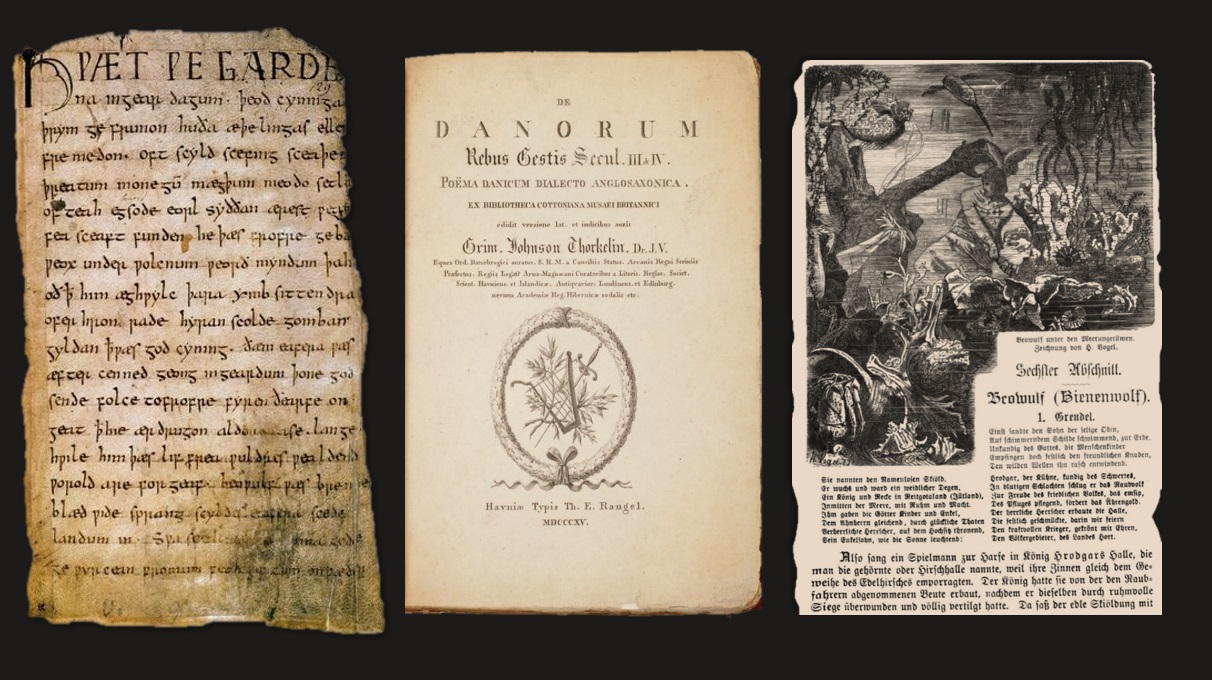 HǷÆT ǷE GARDE
29
na ingear dagum. þeod cyninga
þrym ge frunon huða æþelingas elle
fre medon. oft scyld scefing sceaþe
þreatum monegū mægþum meodo setla
of teah egsode eorl syððan ærest
sceaft funden he þæs frofre geba
ƿeox under ƿolcnum ƿeorð myndum þah
oð þ him æghƿylc þara ymb sittendra
ofer hron rade hyran scolde gomban
gyldan þƿæs god cyning. ðæm eafera ƿæs
æfter cenned geong in geardum þone god
sende folce tofrofre fyren ðearfe on
geat þhie ær drugon aldor ase. lange
hƿile him þæs lif frea ƿuldres ƿealdend
ƿorold are forgeaf. beoƿulf ƿæs breme
blæd ƿide sprang scyldes eafera
landum in.
DE
DANORUM
Rebus Gestis Secul. III & IV.
POËMA DANICUM DIALECTO ANGLOSAXONICA.
EX BIBLIOTHECA COTTONIANA MUSAEI BRITANNICI
edidit versione lat. et indicibus auxit
Grim. Johnson Thorkelin. Dr. J.V.
Eques Ord. Danebrogici auratus. S. R. M. a Consiliis Status. Arcanis Regni Scriniis
Præfectus. Regiis Legati Arna-Magnæani Curatoribus a Literis. Regiar. Societ.
Scient. Havniens. et Islandicæ. Antiqvarior. Londinens. et Edinburg.
nec non Academiæ Reg. Hibernicæ sodalis etc.
Havniæ Typis Th. E. Rangel.
MDCCCXV.
Beowulf unter den Meerungetümen.
Zeichnung von H. Vogel.
Sechster Abschnitt.
Beowulf (Bienenwolf).
1. Grendel.
Einst sandte den Sohn der selige Odin,
Auf schimmerndem Schilde schwimmend, zur Erde.
Unkundig des Gottes, die Menschenkinder
Empfingen doch festlich den freundlichen Knaben,
Den wilden Wellen ihn rasch entwindend.
Sie nannten den Namenlosen Skiöld.
Er wuchs und ward ein weidlicher Degen,
Ein König und Recke in Reitgotaland (Jütland),
Inmitten der Meere, mit Ruhm und Macht.
Ihm gaben die Götter Kinder und Enkel,
Dem Ahnherrn gleichend, durch glückliche Thaten
Verherrlichte Herrscher, auf dem Hochsitz thronend,
Sein Enkelsohn, wie die Sonne leuchtend:
Hrodgar, der Kühne, kundig des Schwertes,
In blutigen Schlachten schlug er das Raubvolk
Zur Freude des friedlichen Volkes, das emsig,
Des Pfluges pflegend, fördert das Ährengold.
Der herrliche Herrscher erbaute die Halle,
Die festlich geschmückte, darin wir feiern
Den kraftvollen Krieger, gekrönt mit Ehren,
Den Völkergebieter, des Landes Hort.
Also sang ein Spielmann zur Harfe in König Hrodgars Halle, die
man die gehörnte oder Hirschhalle nannte, weil ihre Zinnen gleich dem Ge-
weihe des Edelhirsches emporragten. Der König hatte sie von der den Raub-
fahrern abgenommenen Beute erbaut, nachdem er dieselben durch ruhmvolle
Siege überwunden und völlig vertilgt hatte. Da saß der edle Skiöldung mit